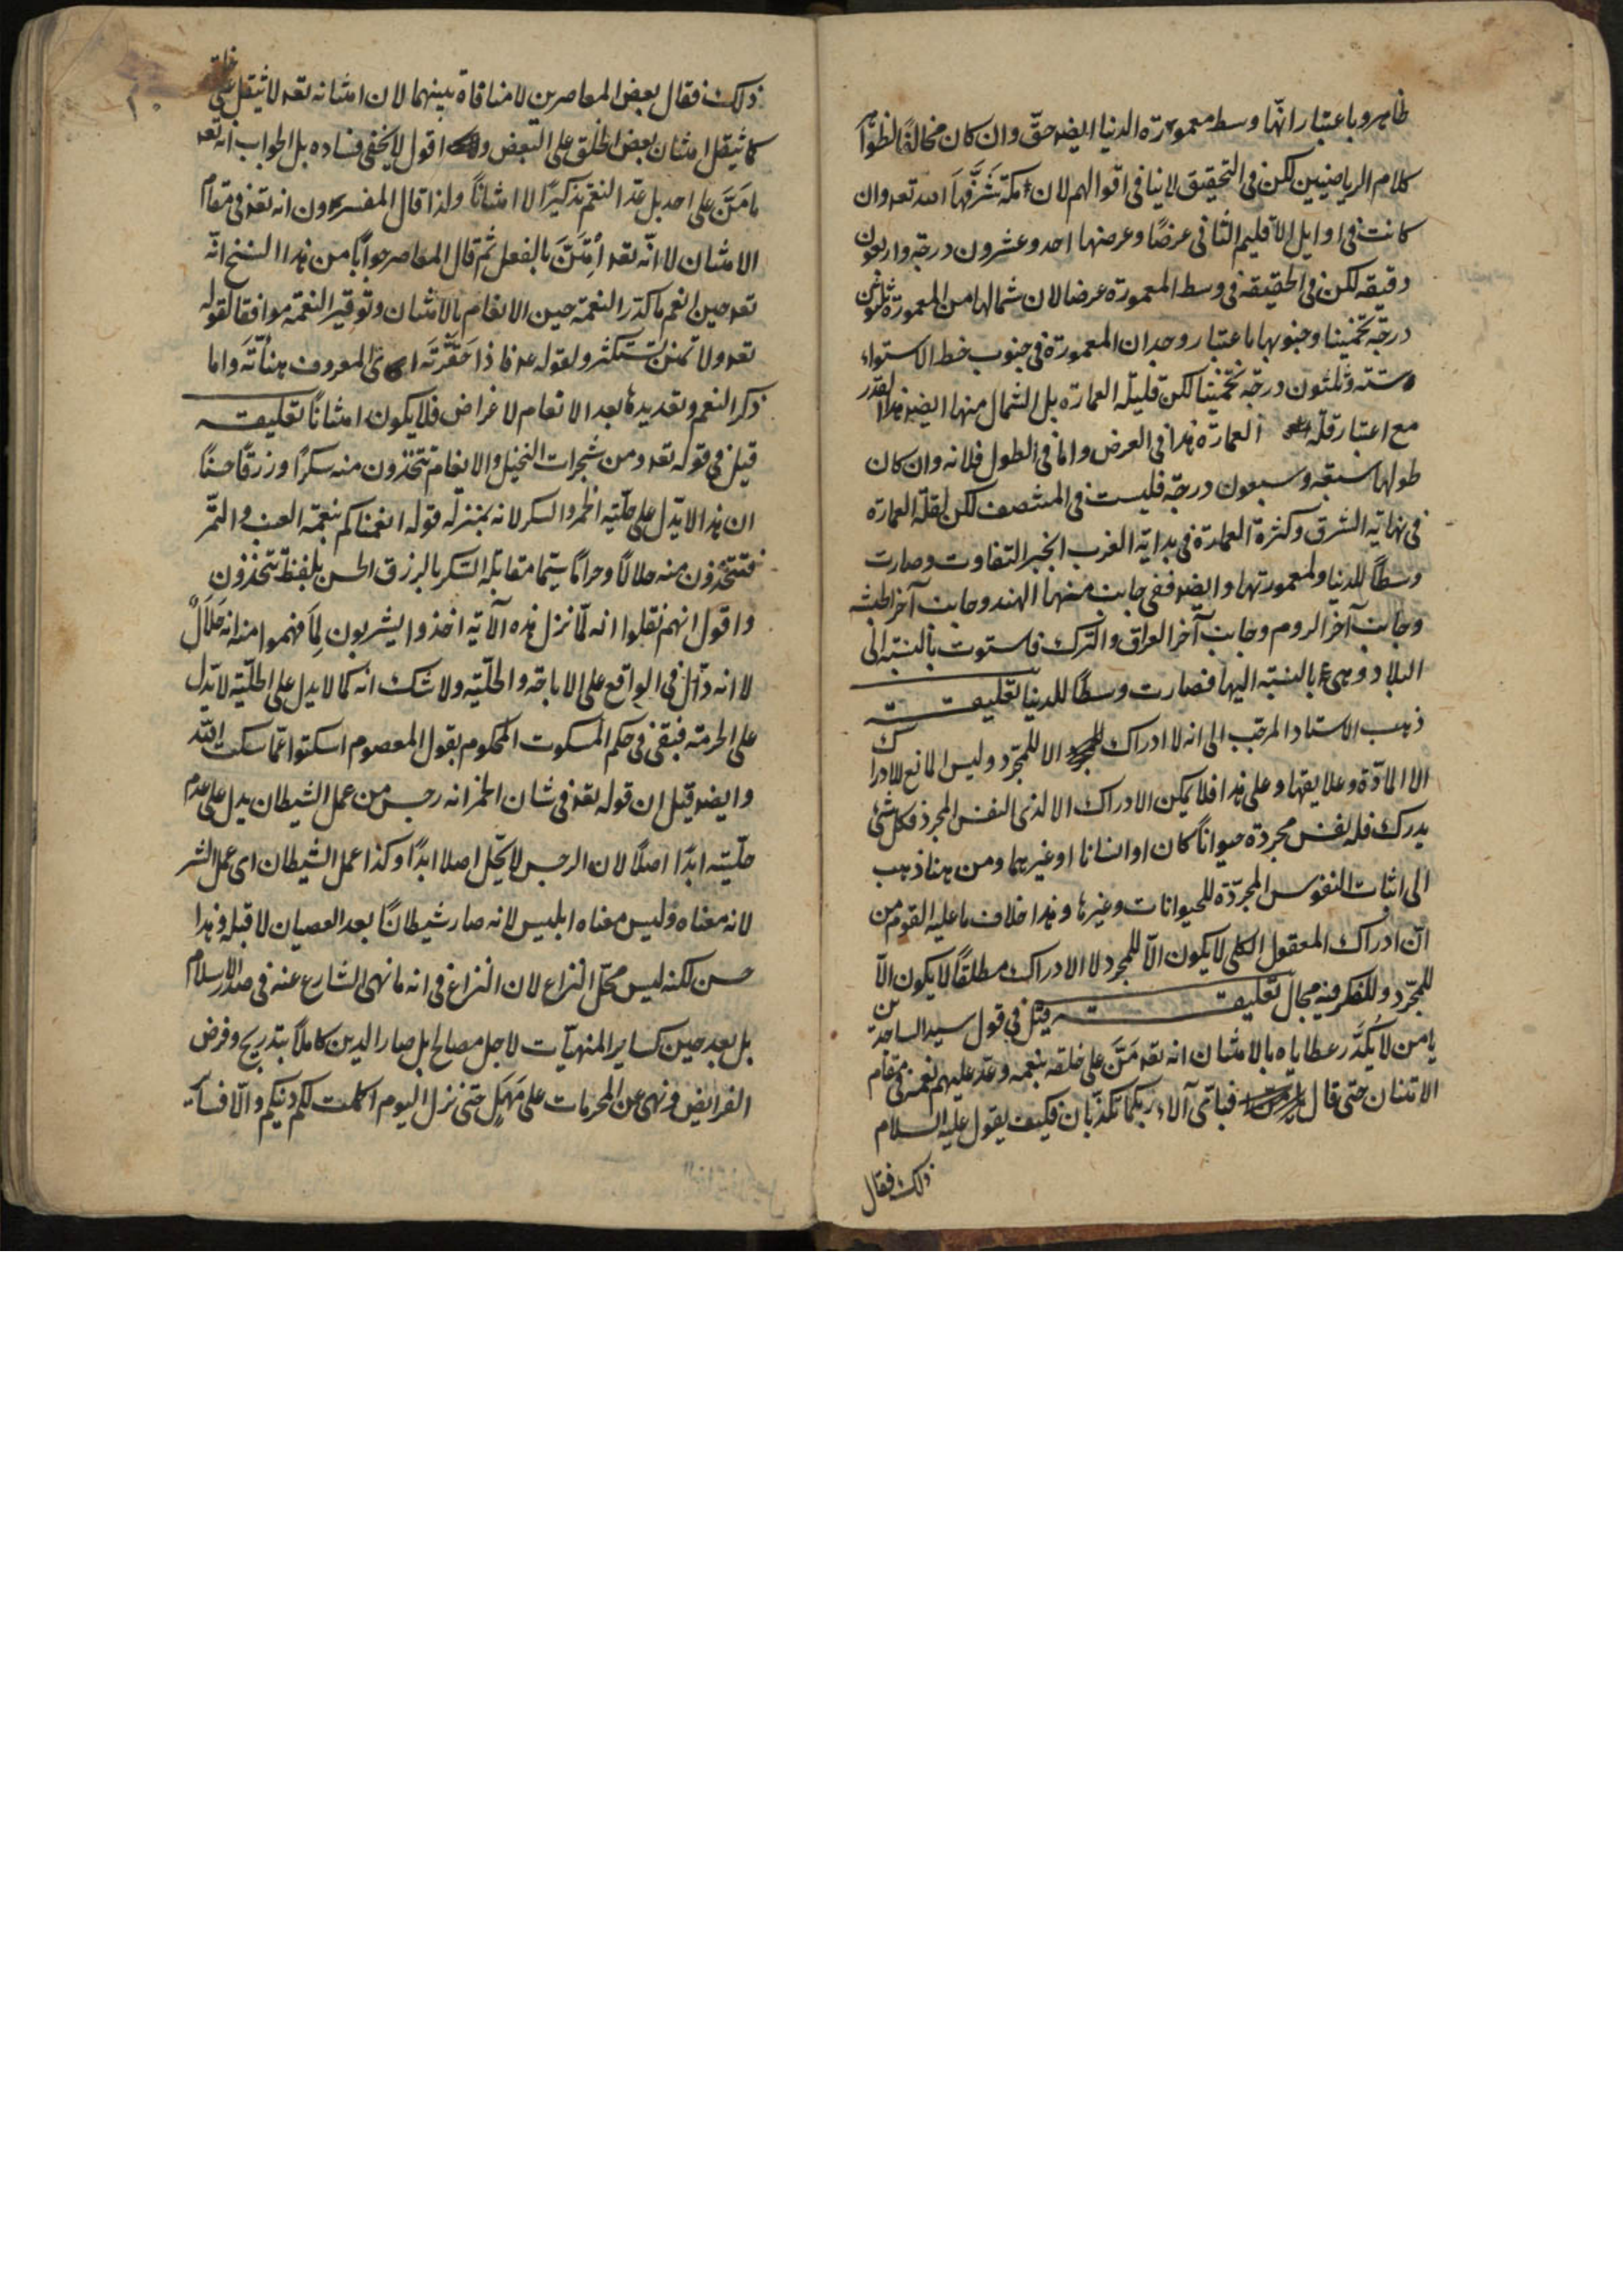 ظاهر وباعتبار انّها وسط معمورة الدنيا ايضا حقّ وان كان مخالفًا لظواهر
كلام الرياضيين لكن فى التحقيق لاينافى اقوالهم لان مكة شَرَّفَها الله تعه وان
كانت فى اوايل الاقليم الثانى عرضًا وعرضها احد وعشرون درجة واربعون
دقيقه لكن فى الحقيقه فى وسط المعمورة عرضا لان شمالها من المعمورة ثلثون
درجة تخمينا وجنوبها باعتبار وجدان المعمورة فى جنوب خط الاستواء
وستة وثلثون درجة تخمينا لكن قليلة العمارة بل الشمال منها ايضا هذا القدر
مع اعتبار قلّة العمارة هذا فى العرض واما فى الطول فلانه وان كان
طولها سبعة وسبعون درجة فليست فى المنتصف لكن لقلّة العمارة
فى نهاية الشرق وكثرة العمارة فى بداية الغرب انجبر التفاوت وصارت
وسطًا للدنيا ولمعمورتها وايضا ففى جانب منها الهند وجانب آخر الحبشه
وجانب آخر الروم وجانب آخر العراق والترك فاستوت بالنسبة الى
البلاد وهى بالنسبة اليها فصارت وسطًا للدنيا تعليقـــة
ذهب الاستاد المرحب الى انه لا ادراك الا للمجرّد وليس المانع للادراك
الا المادّة وعلايقها وعلى هذا فلا يمكن الادراك الا لذى النفس المجرد فكل شئ
يدرك فله نفس مجردة حيوانًا كان او انسانا او غيرهما ومن هنا ذهب
الى اثبات النفوس المجرّدة للحيوانات وغيرها وهذا خلاف ما عليه القوم من
انّ ادراك المعقول الكلى لا يكون الّا للمجرد لا الادراك مطلقًا لا يكون الّا
للمجرّد وللفكر فيه مجال تعليقـــة قيل فى قول سيد الساجدين
يا من لا يُكَدِّر عطاياه بالامتنان انه تعه مَنَّ على خلقه بنعمه وعدّ عليهم نعمه فى مقام
الامتنان حتى قال فباىّ آلاء ربكما تكذّبان فكيف يقول عليه السلام
ذلك فقال
١٠
ذلك فقال بعض المعاصرين لا منافاة بينهما لان امتنانه تعه لا يثقل على خلقه
كما يثقل امتنان بعض الخلق على البعض اقول لا يخفى فساده بل الجواب انه تعه
ما مَنَّ على احد بل عدّ النعم تذكيرًا لا امتنانًا ولذا قال المفسرون انه تعه فى مقام
الامتنان لا انّه تعه اِمْتَنَّ بالفعل ثم قال المعاصر جوابًا من هذا السنخ انّه
تعه حين انعم ما كدّر النعمة حين الانعام بالامتنان وتوقير النعمة موافقا لقوله
تعه ولا تمنن تستكثر ولقوله عه فاذا حَقَّرْتَه اى المعروف هنأتَه واما
ذكر النعم وتعديدها بعد الانعام لاغراض فلا يكون امتنانًا تعليقـــة
قيل فى قوله تعه ومن ثمرات النخيل والاعناب تتخذون منه سكرًا ورزقًا حسنًا
ان هذا لا يدّل على حلّية الخمر والسكر لانه بمنزلة قوله انعمناكم بنعمة العنب والتمّر
فتتخذون منه حلالًا وحرامًا سيّما مقابلة السّكر بالرزق الحسن بلفظ تتخذون
واقول انهم نقلوا انه لمّا نزل هذه الآية اخذوا يشربون لِمَا فهموا منه انه حَلَالٌ
لا انه دالّ فى الواقع على الاباحة والحلّية ولا شك انه كما لا يدل على الحلّية لا يدّل
على الحرمة فبقى فى حكم المسكوت المحكوم بقول المعصوم اسكتوا عمّا سكت الله
وايضا قيل ان قوله تعه فى شان الخمر انه رجس من عمل الشيطان يدل على عدم
حلّيته ابدًا اصلًا لان الرجس لا يحّل اصلا ابدًا وكذا عمل الشيطان اى عمل الشر
لانه معناه وليس معناه ابليس لانه صار شيطانًا بعد العصيان لا قبله وهذا
حسن لكنه ليس محلّ النزاع لان النزاع فى انه ما نهى الشارع عنه فى صدر الاسلام
بل بعد حين كساير المنهيّات لاجل مصالح بل صار الدين كاملًا بتدريج وفرض
الفرايض ونهى عن المحرمات على مَهَلٍ حتى نزل اليوم اكملت لكم دينكم والّا فساير